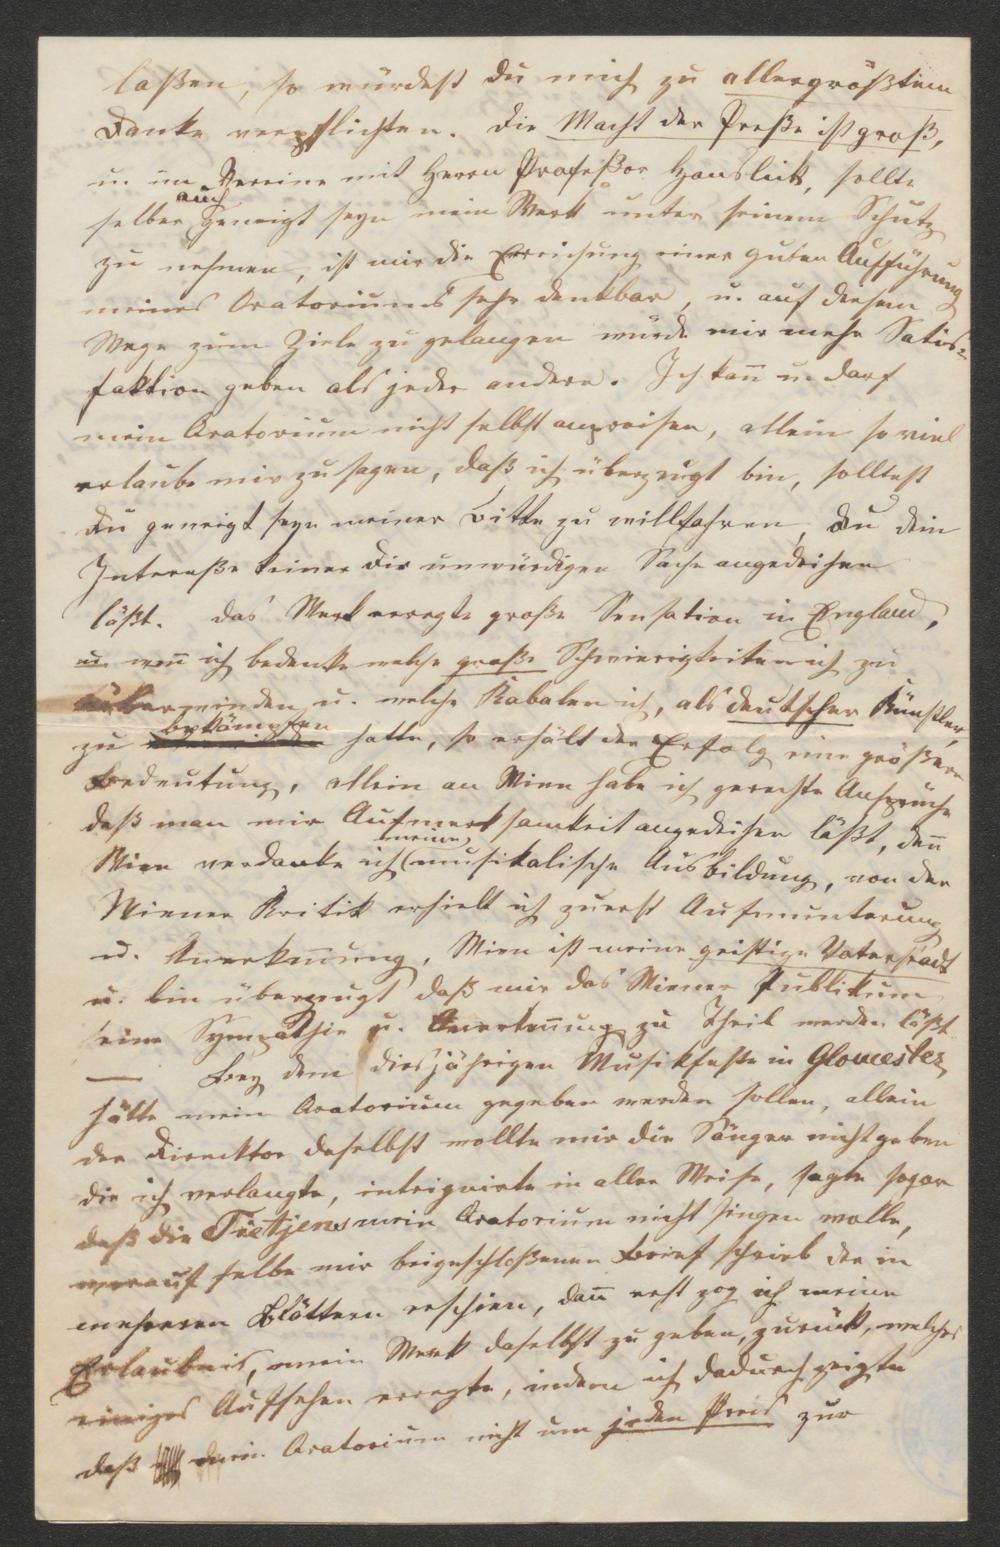 laßen, so würdest Du mich zu allergrößtem
Danke verpflichten. Die Macht der Preße ist groß,
u. im Vereine mit Herrn Profeßor Hanslick, sollte
selber auch geneigt seyn mein Werk unter seinem Schutz
zu nehmen, ist mir die Erreichung einer guten Aufführung
meines Oratoriums sehr denkbar, u. auf diesem
Wege zum Ziele zu gelangen würde mir mehr Satis-
faktion geben als jeder andere. Ich kann̄ u. darf
mein Oratorium nicht selbst anpreisen, allein so viel
erlaube mir zu sagen, daß ich überzeugt bin, solltest
Du geneigt seyn meiner Bitte zu willfahren, Du dein
Intereße keiner Dir unwürdigen Sache angedeihen
läßt. Das Werk erregte große Sensation in England,
u. wen̄ ich bedenke welche große Schwierigkeiten ich zu
überwinden u. welche Kabalen ich, als deutscher Künstler,
zu bekämpfen hatte, so erhält der Erfolg eine größere
Bedeutung, allein an Wien habe ich gerechte Ansprüche
daß man mir Aufmerksamkeit angedeihen läßt, den̄
Wien verdanke ich meine musikalische Ausbildung, von der
Wiener Kritik erhielt ich zuerst Aufmunterung
u. Anerken̄ung, Wien ist meine geistige Vaterstadt
u. bin überzeugt daß mir das Wiener Publikum
seine Sympathie u. Anerken̄ung zu Theil werden läßt.
— Bey dem diesjährigen Musikfeste in Gloucester
hätte mein Oratorium gegeben werden sollen, allein
der Direcktor daselbst wollte mir die Sänger nicht geben
die ich verlangte, intriguirte in aller Weise, sagte sogar
daß die Tietjens mein Oratorium nicht singen wolle,
worauf selbe mir beigeschloßenen Brief schrieb der in
mehreren Blättern erschien, dan̄ erst zog ich meine
Erlaubnis, mein Werk daselbst zu geben, zurück, welches
einiges Aufsehen erregte, indem ich dadurch zeigte
daß mein Oratorium nicht um jeden Preis zur